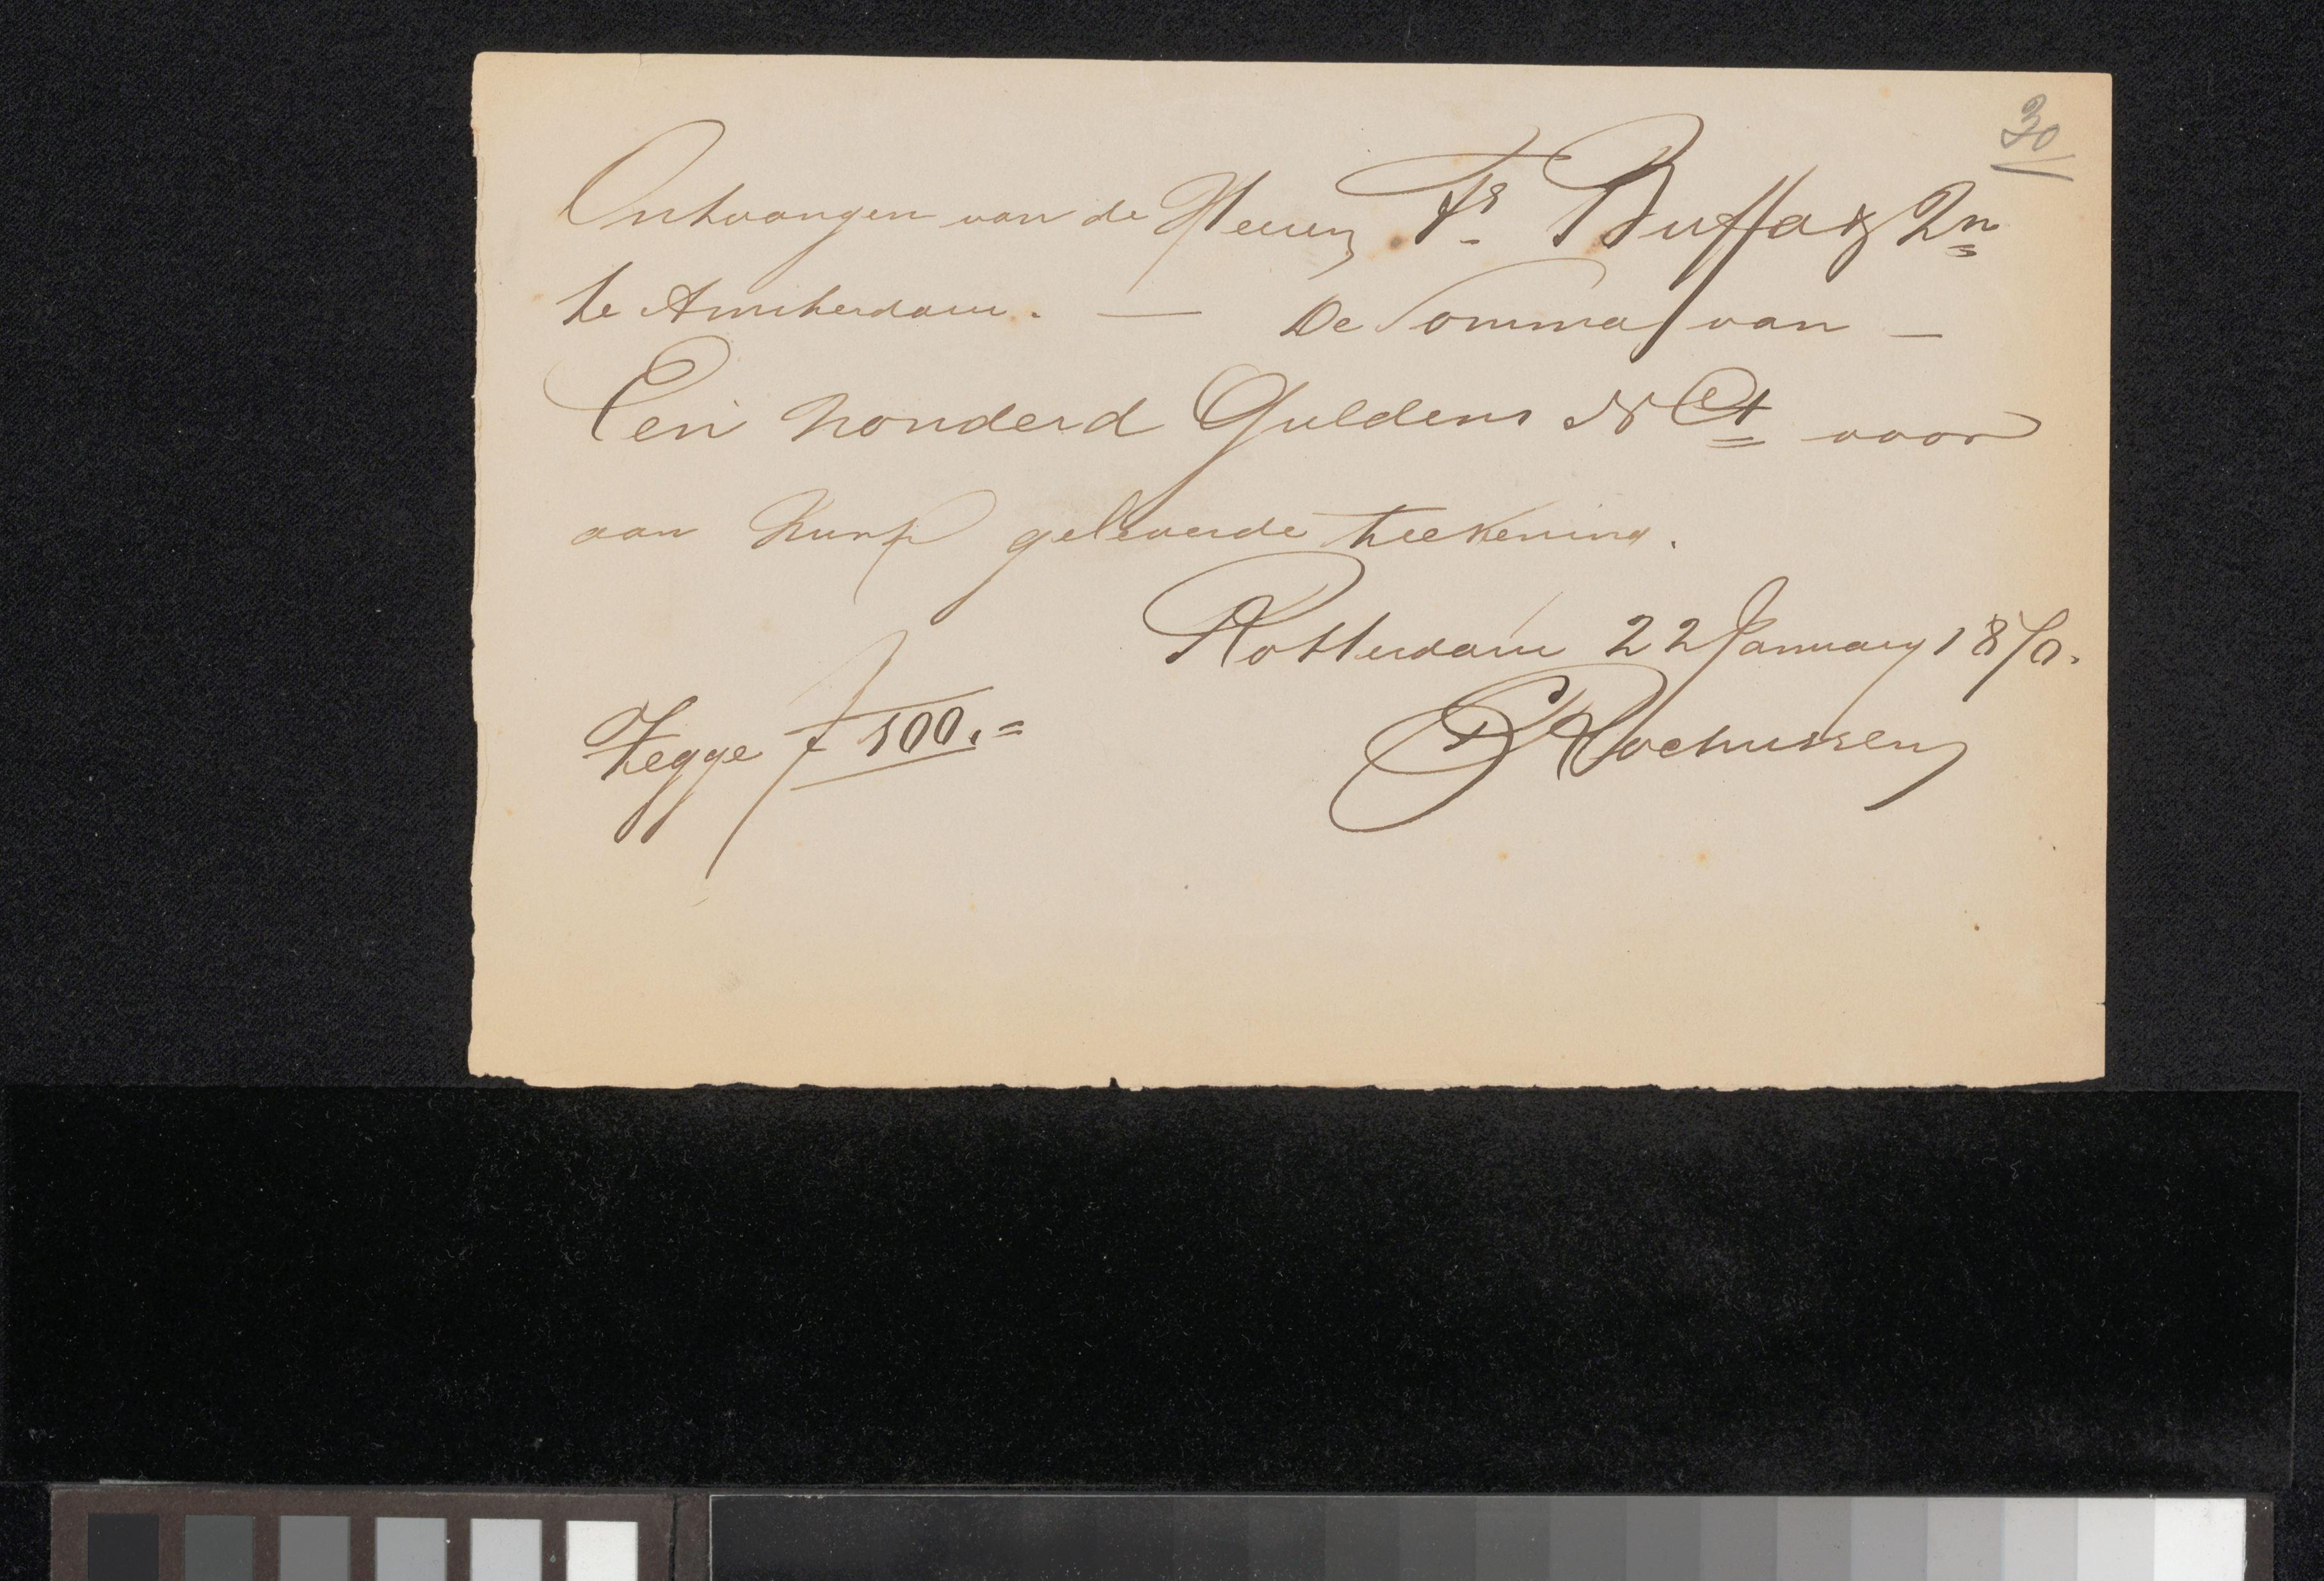 30
Ontvangen van de Heeren Fs Buffa & Zn
te Amsterdam. — De Somma van —
Een honderd Guldens N Ct voor
aan Hun geleverde teekening.
Rotterdam 22 January 1870.
Zegge f 100.=
C Rochussen